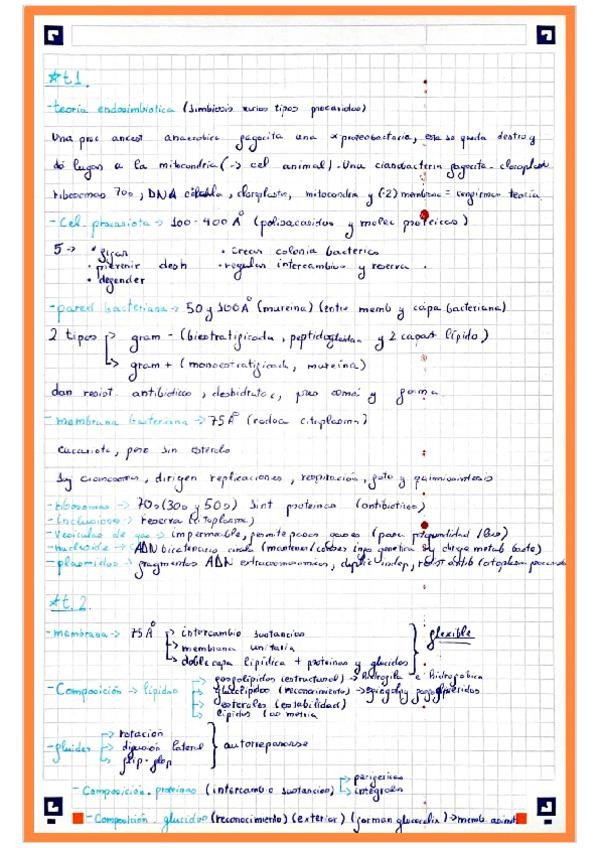 ☆t1.
-teoría endosimbiotica (simbiosis varios tipos procariotas)
Una proc ancest anaerobica fagocita una αproteobacteria, esta se queda dentro y
da lugar a la mitocondria (→ cel animal). Una cianobacteria fagocita - cloroplasto
ribosomas 70s, DNA circular, cloroplastos, mitocondria y (2) membrana = confirman teoría
-Cel. procariota → 100-400 Å (polisacaridos y molec proteicas)
5 →
• fijar
• prevenir desh
• defender
• crear colonia bacterica
• regular intercambios y reserva
-pared bacteriana → 50 y 100 Å (mureina) (entre memb y capa bacteriana)
2 tipos
→ gram - (biestratificada, peptidoglucano y 2 capas lípido)
→ gram + (monoestratificada, mureina)
dan resist. antibiotico, deshidratac, pres osmot y forma
-membrana bacteriana → 75 Å (rodea citoplasma)
eucariota, pero sin esterole
dirigen replicaciones, respiración, foto y quimiosintesis
-ribosomas → 70s (30s y 50s) sint proteinas (antibioticos)
-Inclusiones → reserva (citoplasma)
-Vesiculas de gas → impermeable, permite pasar gases (para profundidad / luz)
-nucleoide → ADN bicatenario
-plasmidos → fragmentos ADN extracromosomicos, duplic indep, resist antib
☆t.2.
-membrana → 75 Å
→ intercambio sustancias
→ membrana unitaria
→ doble capa lipidica + proteinas y glucidos
flexible
-Composición → lípidos
→ fosfolipidos (estructural) → hidrofila e hidrofobica
→ glucolipidos (reconocimiento)
→ esteroles (estabilidad)
→ lipidos
-fluidez
→ rotación
→ difusión lateral
→ flip-flop
autorrepararse
-Composicion. proteinas (intercambio sustancias)
→ perifericas
→ integrales
-Composición. glucidos (reconocimiento) (exterior) (forman glucocalix) → memb.